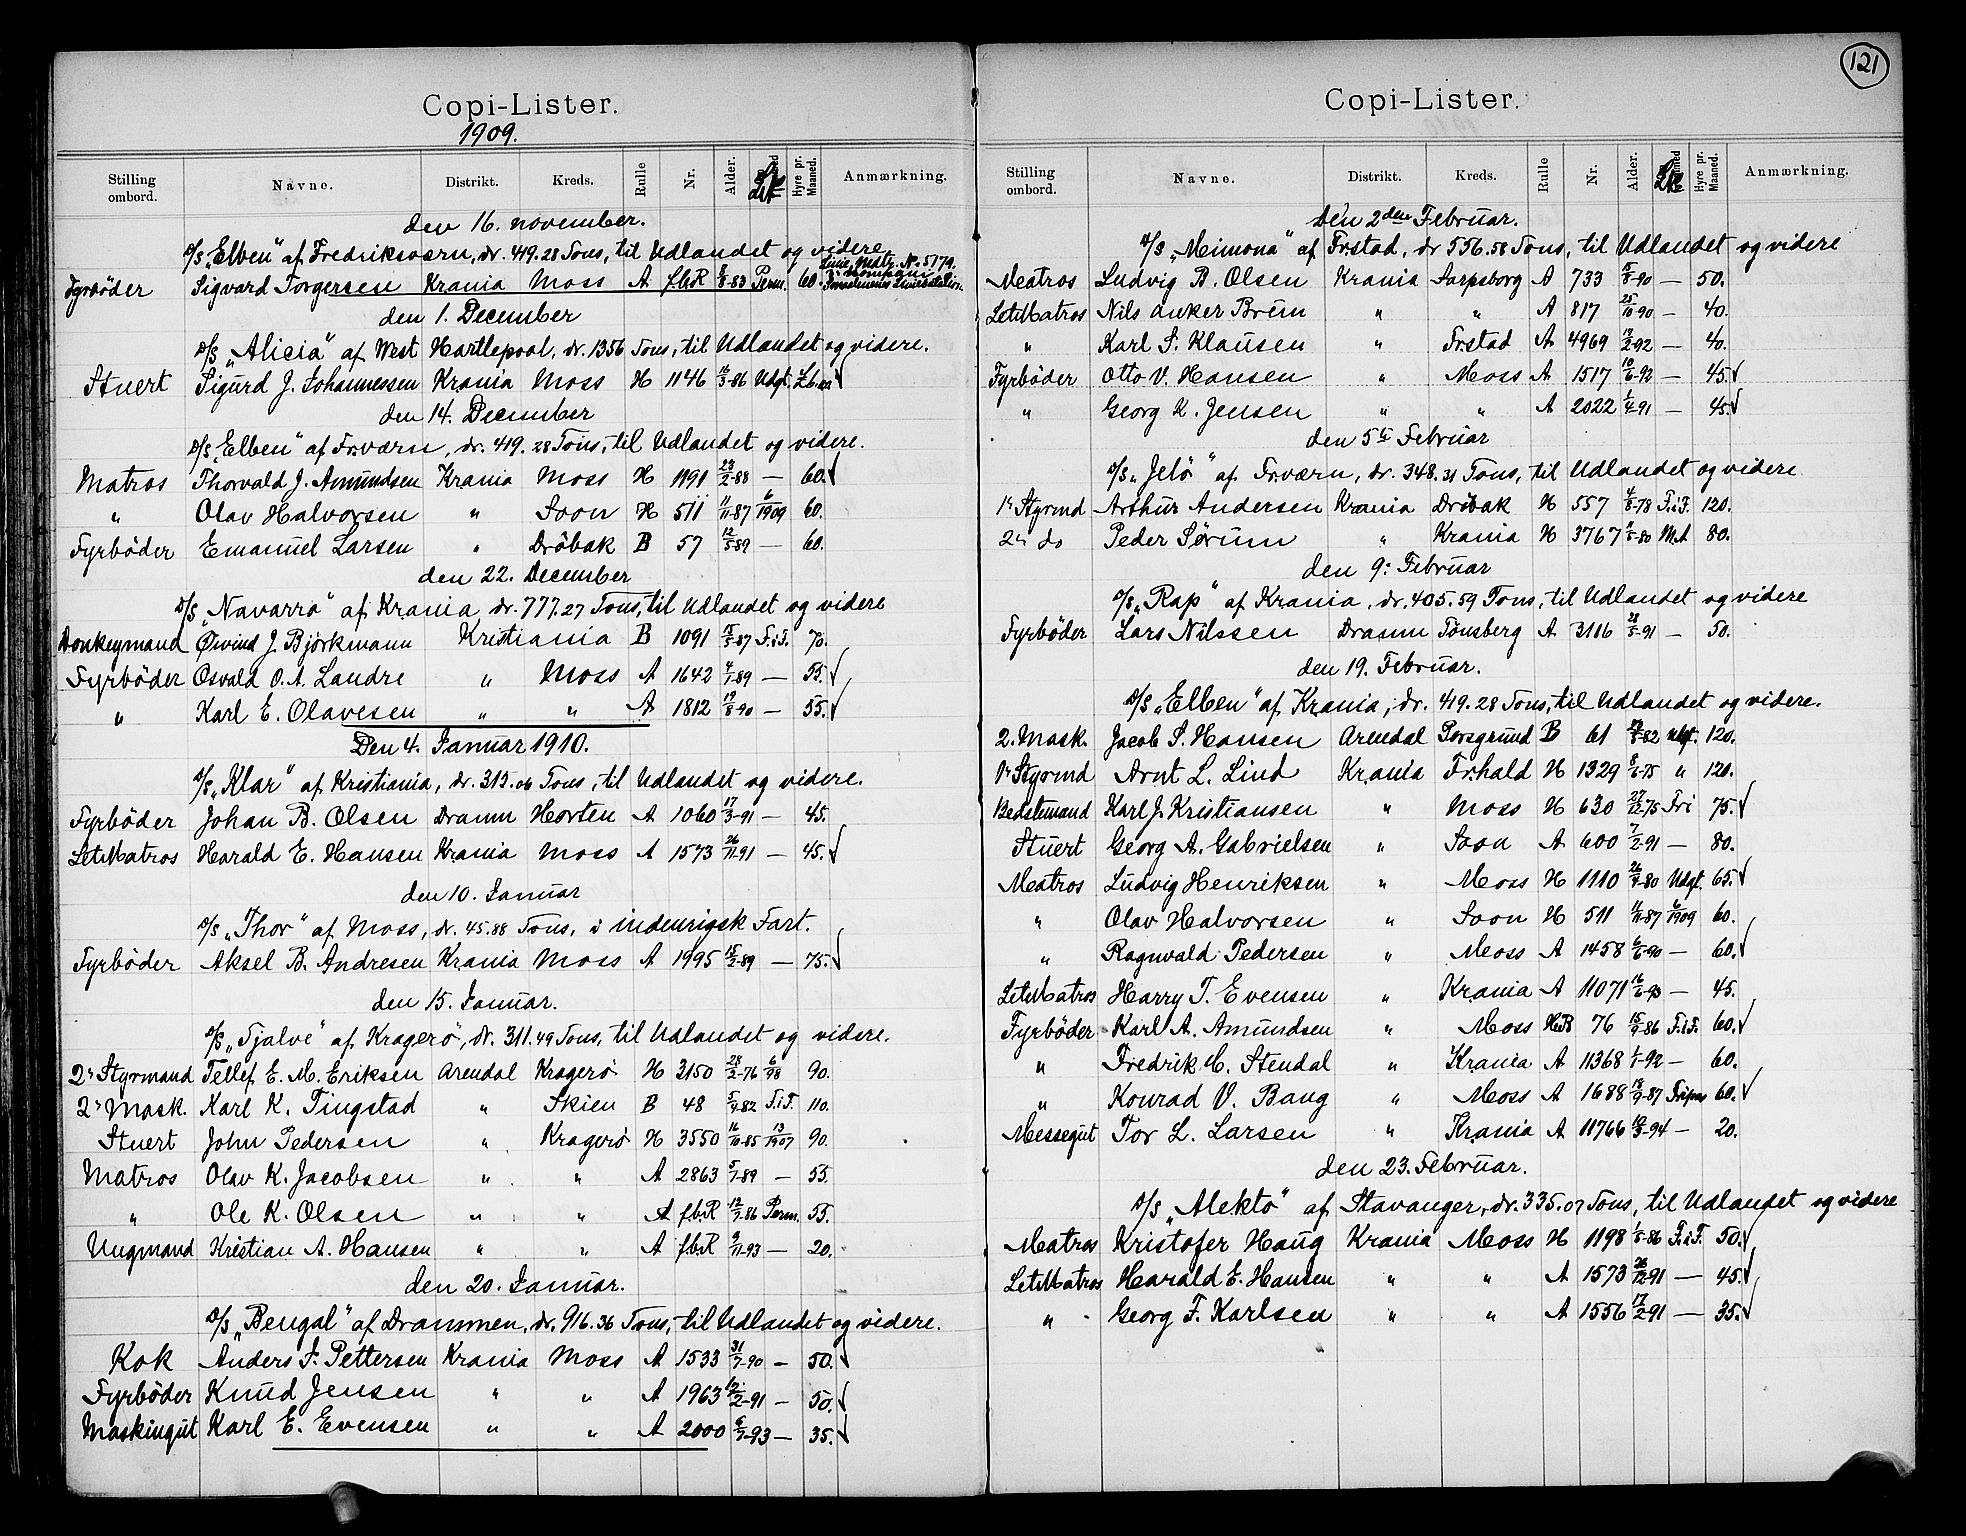 Copi-Lister.
1909.
Stilling ombord. Navne. Distrikt. Kreds. Rulle Nr. Alder. Hyre pr. Maaned. Anmærkning.
den 16. november.
D/S „Elben" af Fredriksværn, dr. 419.28 Tons, til Udlandet og videre
Fyrbøder Sigvard Torgersen Krania Moss A f.b.R 8-83 Perm. 60.
den 1. December
D/S „Alicia" af West Hartlepool, dr. 1356 Tons, til Udlandet og videre.
Stuert Sigurd J. Johannessen Krania Moss H 1146 16/3-86 Udgt.
den 14. December
D/S „Elben" af Fr.værn, dr. 419.28 Tons, til Udlandet og videre.
Matros Thorvald J. Amundsen Krania Moss H 1191 23/2-88 — 60.
" Olav Halvorsen " Soon H 511 11/11-87 6/1909 60.
Fyrbøder Emanuel Larsen " Dröbak B 57 12/5-89 — 60.
den 22. December
D/S „Navarra" af Krania, dr. 777.27 Tons, til Udlandet og videre
Donkeymand Øivind J. Bjørkmann Kristiania B 1091 15/5-87 F.i.F. 70.
Fyrbøder Osvald O. A. Landre " Moss A 1642 4/1-89 — 55.
" Karl E. Olavesen " " A 1812 19/8-90 — 55.
Den 4. Januar 1910.
D/S „Klar" af Kristiania, dr. 313.06 Tons, til Udlandet og videre.
Fyrbøder Johan B. Olsen Dramn Horten A 1060 17/3-91 — 45.
LetMatros Harald E. Hansen Krania Moss A 1573 26/11-91 — 45.
den 10. Januar
D/S „Thor" af Moss, dr. 45.88 Tons, i indenrigsk Fart.
Fyrbøder Aksel B. Andresen Krania Moss A 1995 15/2-89 — 75.
den 15. Januar.
D/S „Tjalve" af Kragerö, dr. 311.49 Tons, til Udlandet og videre.
2n Styrmand Tellef E. M. Eriksen Arendal Kragerö H 3150 28/2-76 6/98 90.
2n Mask. Karl K. Tingstad " Skien B 48 5/9-82 F.i.F. 110.
Stuert John Pedersen " Kragerö H 3550 16/10-85 13/1907 90.
Matros Olav K. Jacobsen " " A 2863 5/1-89 — 55.
" Ole K. Olsen " " A f.b.R 12/7-86 Perm. 55.
Ungmand Kristian A. Hansen " " A f.b.R 9/11-93 — 20.
den 20. Januar.
D/S „Bengal" af Drammen, dr. 916.36 Tons, til Udlandet og videre.
Kok Anders F. Pettersen Krania Moss A 1533 31/7-90 — 50.
Fyrbøder Knud Jensen " " A 1963 12/2-91 — 50.
Maskingut Karl E. Evensen " " A 2000 6/7-93 — 35.
121
Copi-Lister.
Stilling ombord. Navne. Distrikt. Kreds. Rulle Nr. Alder. Hyre pr. Maaned. Anmærkning.
Den 2den Februar.
D/S „Mimona" af Frstad, dr 556.58 Tons, til Udlandet og videre
Matros Ludvig B. Olsen Krania Sarpsborg A 733 5/8-90 — 50.
LetMatros Nils Anker Brün " " A 817 25/10-90 — 40.
" Karl S. Klausen " Frstad A 4969 13/2-92 — 40.
Fyrbøder Otto V. Hansen " Moss A 1517 10/6-92 — 45.
" Georg K. Jensen " " A 2022 1/4-91 — 45.
den 5te Februar
D/S „Jelö" af Fr.værn, dr. 348.31 Tons, til Udlandet og videre
1n Styrmd Arthur Andersen Krania Dröbak H 557 4/8-78 F.i.F. 120.
2n do Peder Sørum " Krania H 3767 5-80 M.A 80.
den 9: Februar
D/S „Rap" af Krania, dr. 405.59 Tons, til Udlandet og videre
Fyrbøder Lars Nilssen Dramn Tønsberg A 3116 28/5-91 — 50.
den 19. Februar.
D/S „Elben" af Krania, dr. 419.28 Tons, til Udlandet og videre.
2. Mask. Jacob S. Hansen Arendal Porsgrund B 61 8-82 udgt. 120.
1n Styrmd Arnt L. Lind Krania Fr.hald H 1329 8/6-75 " 120.
Bedstemand Karl J. Kristiansen " Moss H 630 27/12-75 Fri 75.
Stuert Georg A. Gabrielsen " Soon A 600 7/2-91 — 80.
Matros Ludvig Henriksen " Moss H 1110 26/9-80 Udgt. 65.
" Olav Halvorsen " Soon H 511 11/11-87 6/1909 60.
" Ragnvald Pedersen " Moss A 1458 6/6-90 — 60.
LetMatros Harry T. Evensen " Krania A 11071 16/6-93 — 45.
Fyrbøder Karl A. Amundsen " Moss H.B 76 15/9-86 F.i.F. 60.
" Fredrik C. Stendal " Krania A 11368 1/1-92 — 60.
" Konrad V. Bang " Moss A 1688 18/9-87 60.
Messegut Tor L. Larsen " Krania A 11766 10/3-94 — 20.
den 23. Februar.
D/S „Alekto" af Stavanger, dr. 335.07 Tons, til Udlandet og videre
Matros Kristofer Haug Krania Moss H 1198 1/8-86 F.i.F. 50.
LetMatros Harald E. Hansen " " A 1573 26/12-91 — 45.
" Georg F. Karlsen " " A 1556 17/2-91 — 35.